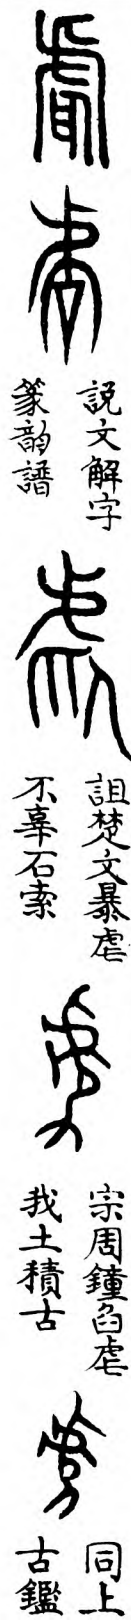 說文解字
篆韵譜
詛楚文暴虐
不辜石索
宗周鐘臽虐
我土積古
同上
古鑑